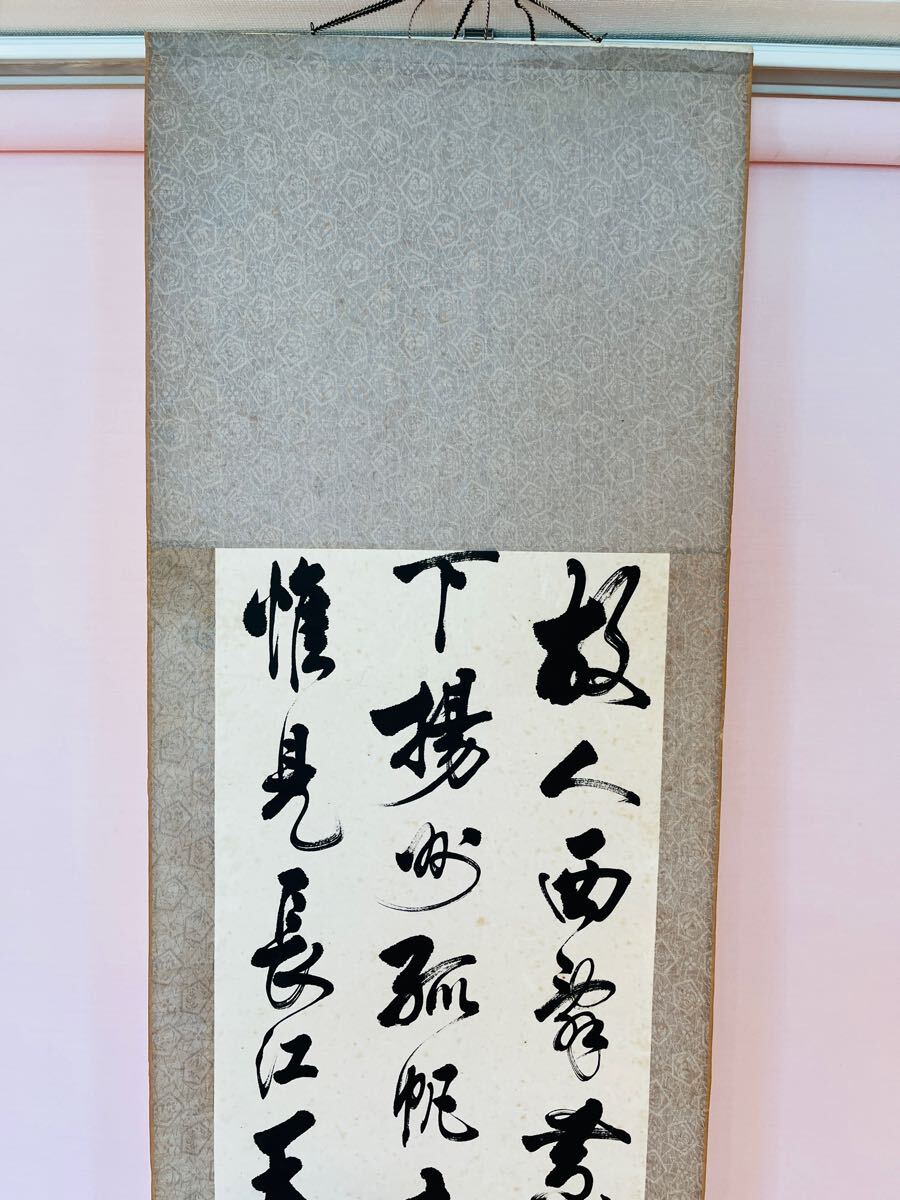 故人西辭黃
下揚州孤帆
惟見長江天